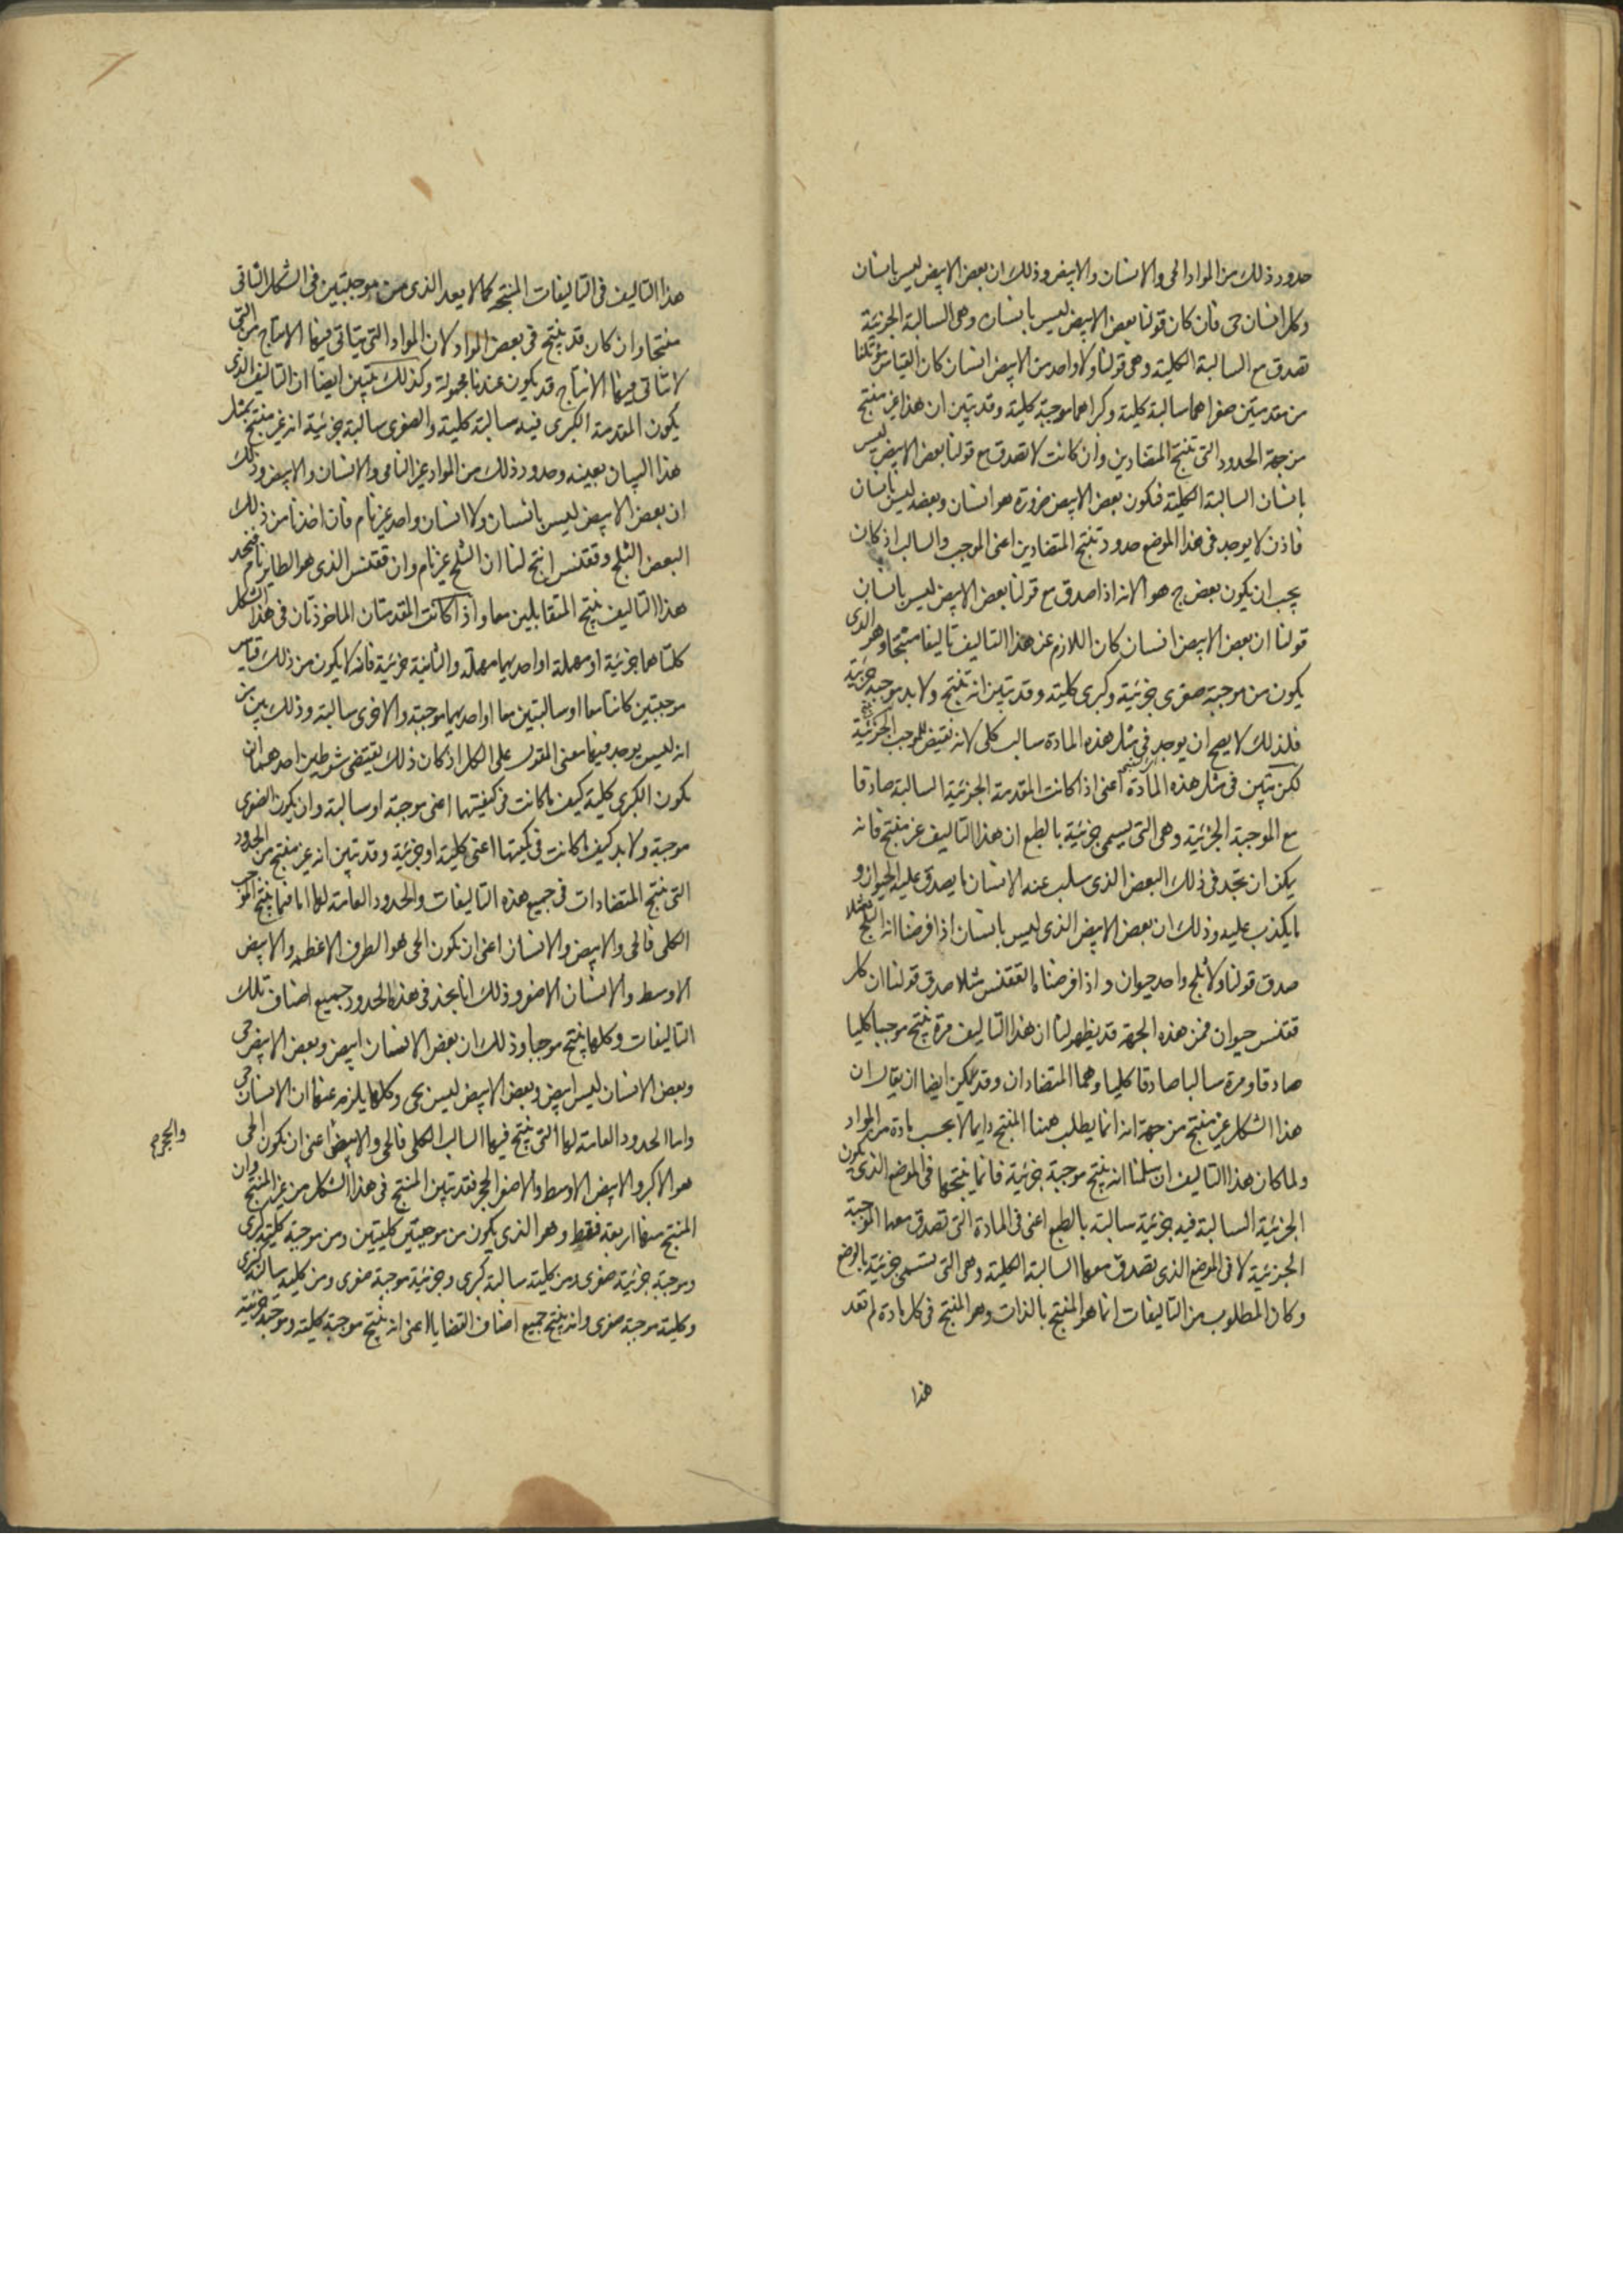 حدود ذلك من المواد الحى والانسان والابيض وذلك ان بعض الابيض ليس بانسان
وكل انسان حى فان كان قولنا بعض الابيض ليس بانسان وهى السالبة الجزئية
تصدق مع السالبة الكلية وهى قولنا ولا واحد من الابيض انسان كان القياس مؤتلفا
من مقدمتين صغراهما سالبة كلية وكبراهما موجبة كلية وقد تبين ان هذا غير منتج
من جهة الحدود التى تنتج المتضادين وان كانت لا تصدق مع قولنا بعض الابيض ليس
بانسان السالبة الكلية فكون بعض الابيض ضرورة هو انسان وبعضه ليس بانسان
فاذن لا يوجد فى هذا الموضع حدود تنتج المتضادين اعنى الموجب والسالب اذ كان
يجب ان يكون بعض ج هو ا لانه اذا صدق مع قولنا بعض الابيض ليس بانسان
قولنا ان بعض الابيض انسان كان اللازم عن هذا التاليف تاليفا منتجا وهو الذى
يكون من موجبة صغرى جزئية وكبرى كلية وقد تبين انه تنتج ولا بد موجبة جزئية
فلذلك لا يصح ان يوجد فى مثل هذه المادة سالب كلى لانه نقيض للموجب الجزئية
لكن تبين فى مثل هذه المادة اعنى اذا كانت المقدمة الجزئية السالبة صادقا
مع الموجبة الجزئية وهى التى يسمى جزئية بالطبع ان هذا التاليف غير منتج فانه
يمكن ان نجد فى ذلك البعض الذى سلب عنه الانسان ما يصدق عليه الحيوان و
ما يكذب عليه وذلك ان بعض الابيض الذى ليس بانسان اذا فرضنا انه الثلج مثلا
صدق قولنا ولا ثلج واحد حيوان واذا فرضنا ما لققنس مثلا صدق قولنا ان كل
ققنس حيوان فمن هذه الجهة قد يظهر لنا ان هذا التاليف مرة ينتج موجبا كليا
صادقا ومرة سالبا صادقا كليا وهما المتضادان وقد يمكن ايضا ان يقال ان
هذا الشكل غير منتج من جهة انه انما يطلب ههنا المنتج دايما لا بحسب مادة من المواد
ولما كان هذا التاليف ان سلمنا انه ينتج موجبة جزئية فانما ينتجها فى الموضع الذى يكون
الجزئية السالبة فيه جزئية سالبة بالطبع اعنى فى المادة التى تصدق معها الموجبة
الجزئية لا فى الموضع الذى تصدق معها السالبة الكلية وهى التى تسمى جزئية بالوضع
وكان المطلوب من التاليفات انما هو المنتج بالذات وهو المنتج فى كل مادة لم نعد
هذا
هذا التاليف فى التاليفات المنتجة كما لا يعد الذى من موجبتين فى الشكل الثانى
منتجا وان كان قد ينتج فى بعض المواد لان المواد التى يتاتى فيها الانتاج من التى
لا يتاتى فيها الانتاج قد يكون عندنا مجهولة وكذلك يتبين ايضا ان التاليف الذى
يكون المقدمة الكبرى فيه سالبة كلية والصغرى سالبة جزئية انه غير منتج بمثل
هذا البيان بعينه وحدود ذلك من المواد غير النامى والانسان والابيض وذلك
ان بعض الابيض ليس بانسان ولا انسان واحد غير نام فان اخذنا من ذلك
البعض الثلج وققنس انتج لنا ان الثلج غير نام وان ققنس الذى هو الطاير نام فنجد
هذا التاليف ينتج المتقابلين معا واذا كانت المقدمتان الماخوذتان فى هذا الشكل
كلتاهما جزئية او مهملة او احديهما مهملة والثانية جزئية فانه لا يكون من ذلك قياس
موجبتين كانتا معا او سالبتين معا او احديهما موجبة والاخرى سالبة وذلك بين من
انه ليس يوجد فيها معنى المقول على الكل اذ كان ذلك يقتضى شرطين احدهما ان
يكون الكبرى كلية كيف ما كانت فى كيفيتها اعنى موجبة او سالبة وان يكون الصغرى
موجبة ولا بد كيف ما كانت فى كميتها اعنى كلية او جزئية وقد تبين انه غير منتج من الحدود
التى تنتج المتضادات فى جميع هذه التاليفات والحدود العامة لها اما فيما ينتج الموجب
الكلى فالحى والابيض والانسان اعنى ان يكون الحى هو الطرف الاعظم والابيض
الاوسط والانسان الاصغر وذلك انا نجد فى هذه الحدود جميع اصناف تلك
التاليفات وكلها ينتج موجبا وذلك ان بعض الانسان ابيض وبعض الابيض حى
وبعض الانسان ليس ابيض وبعض الابيض ليس بحى وكلها يلزم عنها ان الانسان حى
واما الحدود العامة لها التى ينتج فيها السالب الكلى فالحى والابيض اعنى ان يكون الحى
والحجر
هو الاكبر والابيض الاوسط والاصغر الحجر فقد تبين المنتج فى هذا الشكل من غير المنتج وان
المنتج منها اربعة فقط وهو الذى يكون من موجبتين كليتين ومن موجبة كلية كبرى
وموجبة جزئية صغرى ومن كلية سالبة كبرى وجزئية موجبة صغرى ومن كلية سالبة كبرى
وكلية موجبة صغرى وانه ينتج جميع اصناف القضايا اعنى انه ينتج موجبة كلية وموجبة جزئية